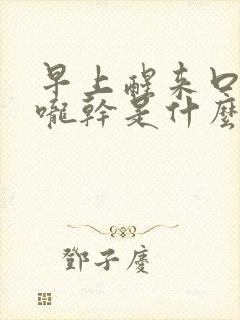 早上醒来口
嚨幹是什麼
鄧子慶